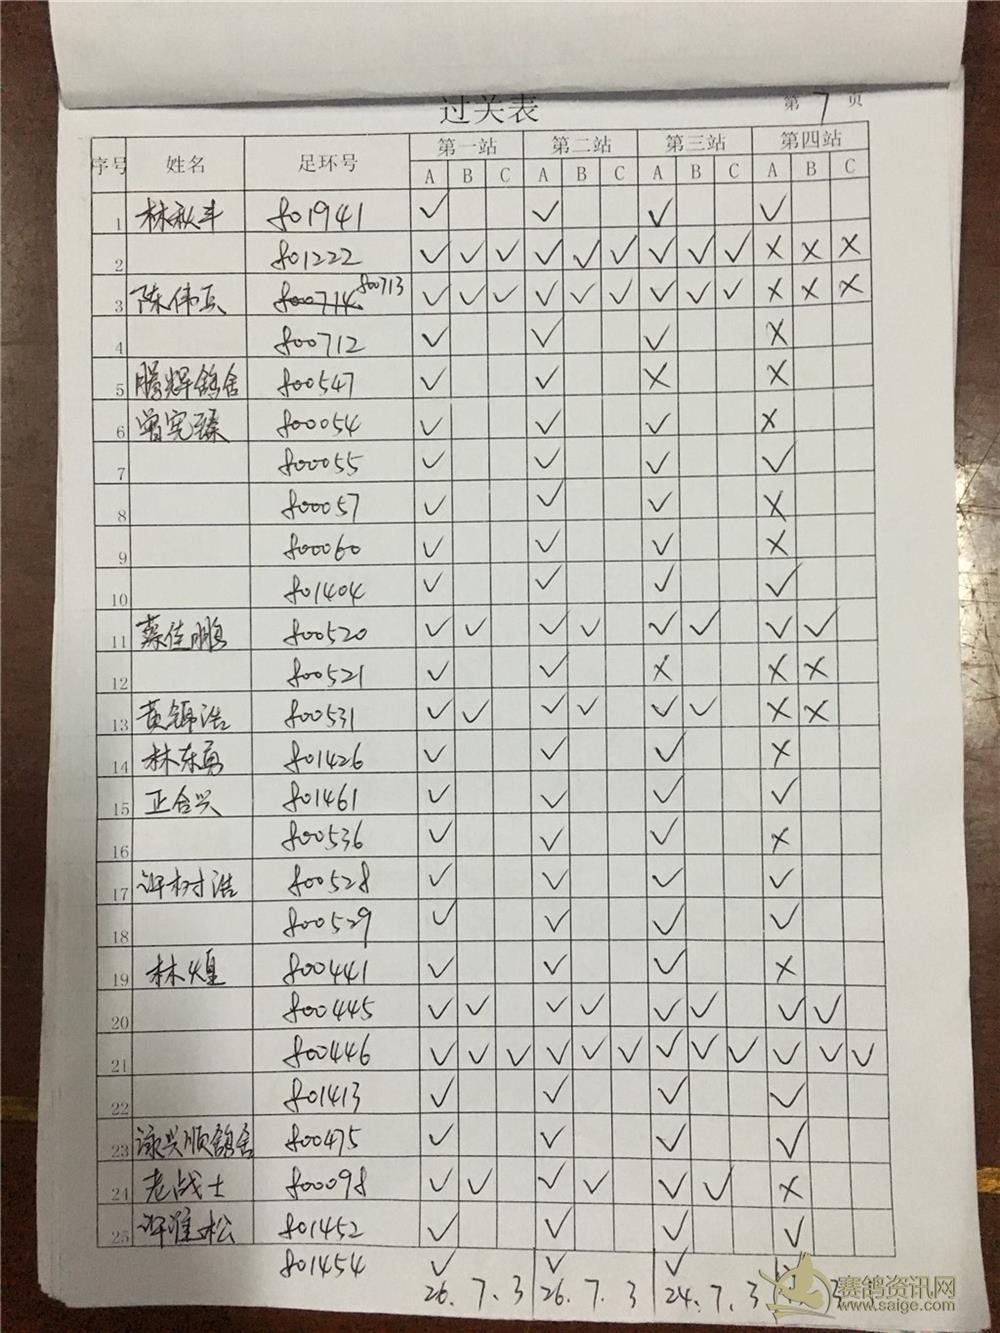 过关表 第 7 页
序号 姓名 足环号 第一站 第二站 第三站 第四站
A B C A B C A B C A B C
1 林秋丰 801941 ✓ ✓ ✓ ✓
2 801222 ✓ ✓ ✓ ✓ ✓ ✓ ✓ ✓ ✓ × × ×
3 陈伟兵 800714 800713 ✓ ✓ ✓ ✓ ✓ ✓ ✓ ✓ ✓ × × ×
4 800712 ✓ ✓ ✓ ×
5 腾辉鸽舍 800547 ✓ ✓ × ×
6 曾宪臻 800054 ✓ ✓ ✓ ×
7 800055 ✓ ✓ ✓ ✓
8 800057 ✓ ✓ ✓ ×
9 800060 ✓ ✓ ✓ ×
10 801404 ✓ ✓ ✓ ✓
11 蔡佳鹏 800520 ✓ ✓ ✓ ✓ ✓ ✓ ✓ ✓
12 800521 ✓ ✓ × × ×
13 黄锦浩 800531 ✓ ✓ ✓ ✓ ✓ ✓ × ×
14 林东勇 801426 ✓ ✓ ✓ ×
15 正合兴 801461 ✓ ✓ ✓ ✓
16 800536 ✓ ✓ ✓ ×
17 许树浩 800528 ✓ ✓ ✓ ✓
18 800529 ✓ ✓ ✓ ✓
19 林煌 800441 ✓ ✓ ✓ ×
20 800445 ✓ ✓ ✓ ✓ ✓ ✓ ✓ ✓
21 800446 ✓ ✓ ✓ ✓ ✓ ✓ ✓ ✓ ✓ ✓ ✓ ✓
22 801413 ✓ ✓ ✓ ✓
23 兴顺鸽舍 800475 ✓ ✓ ✓ ✓
24 老战士 800098 ✓ ✓ ✓ ✓ ✓ ✓ ×
25 许淮松 801452 ✓ ✓ ✓ ✓
801454 ✓ ✓ ✓
26. 7. 3 26. 7. 3 24. 7. 3 3
赛鸽资讯网
www.saige.com